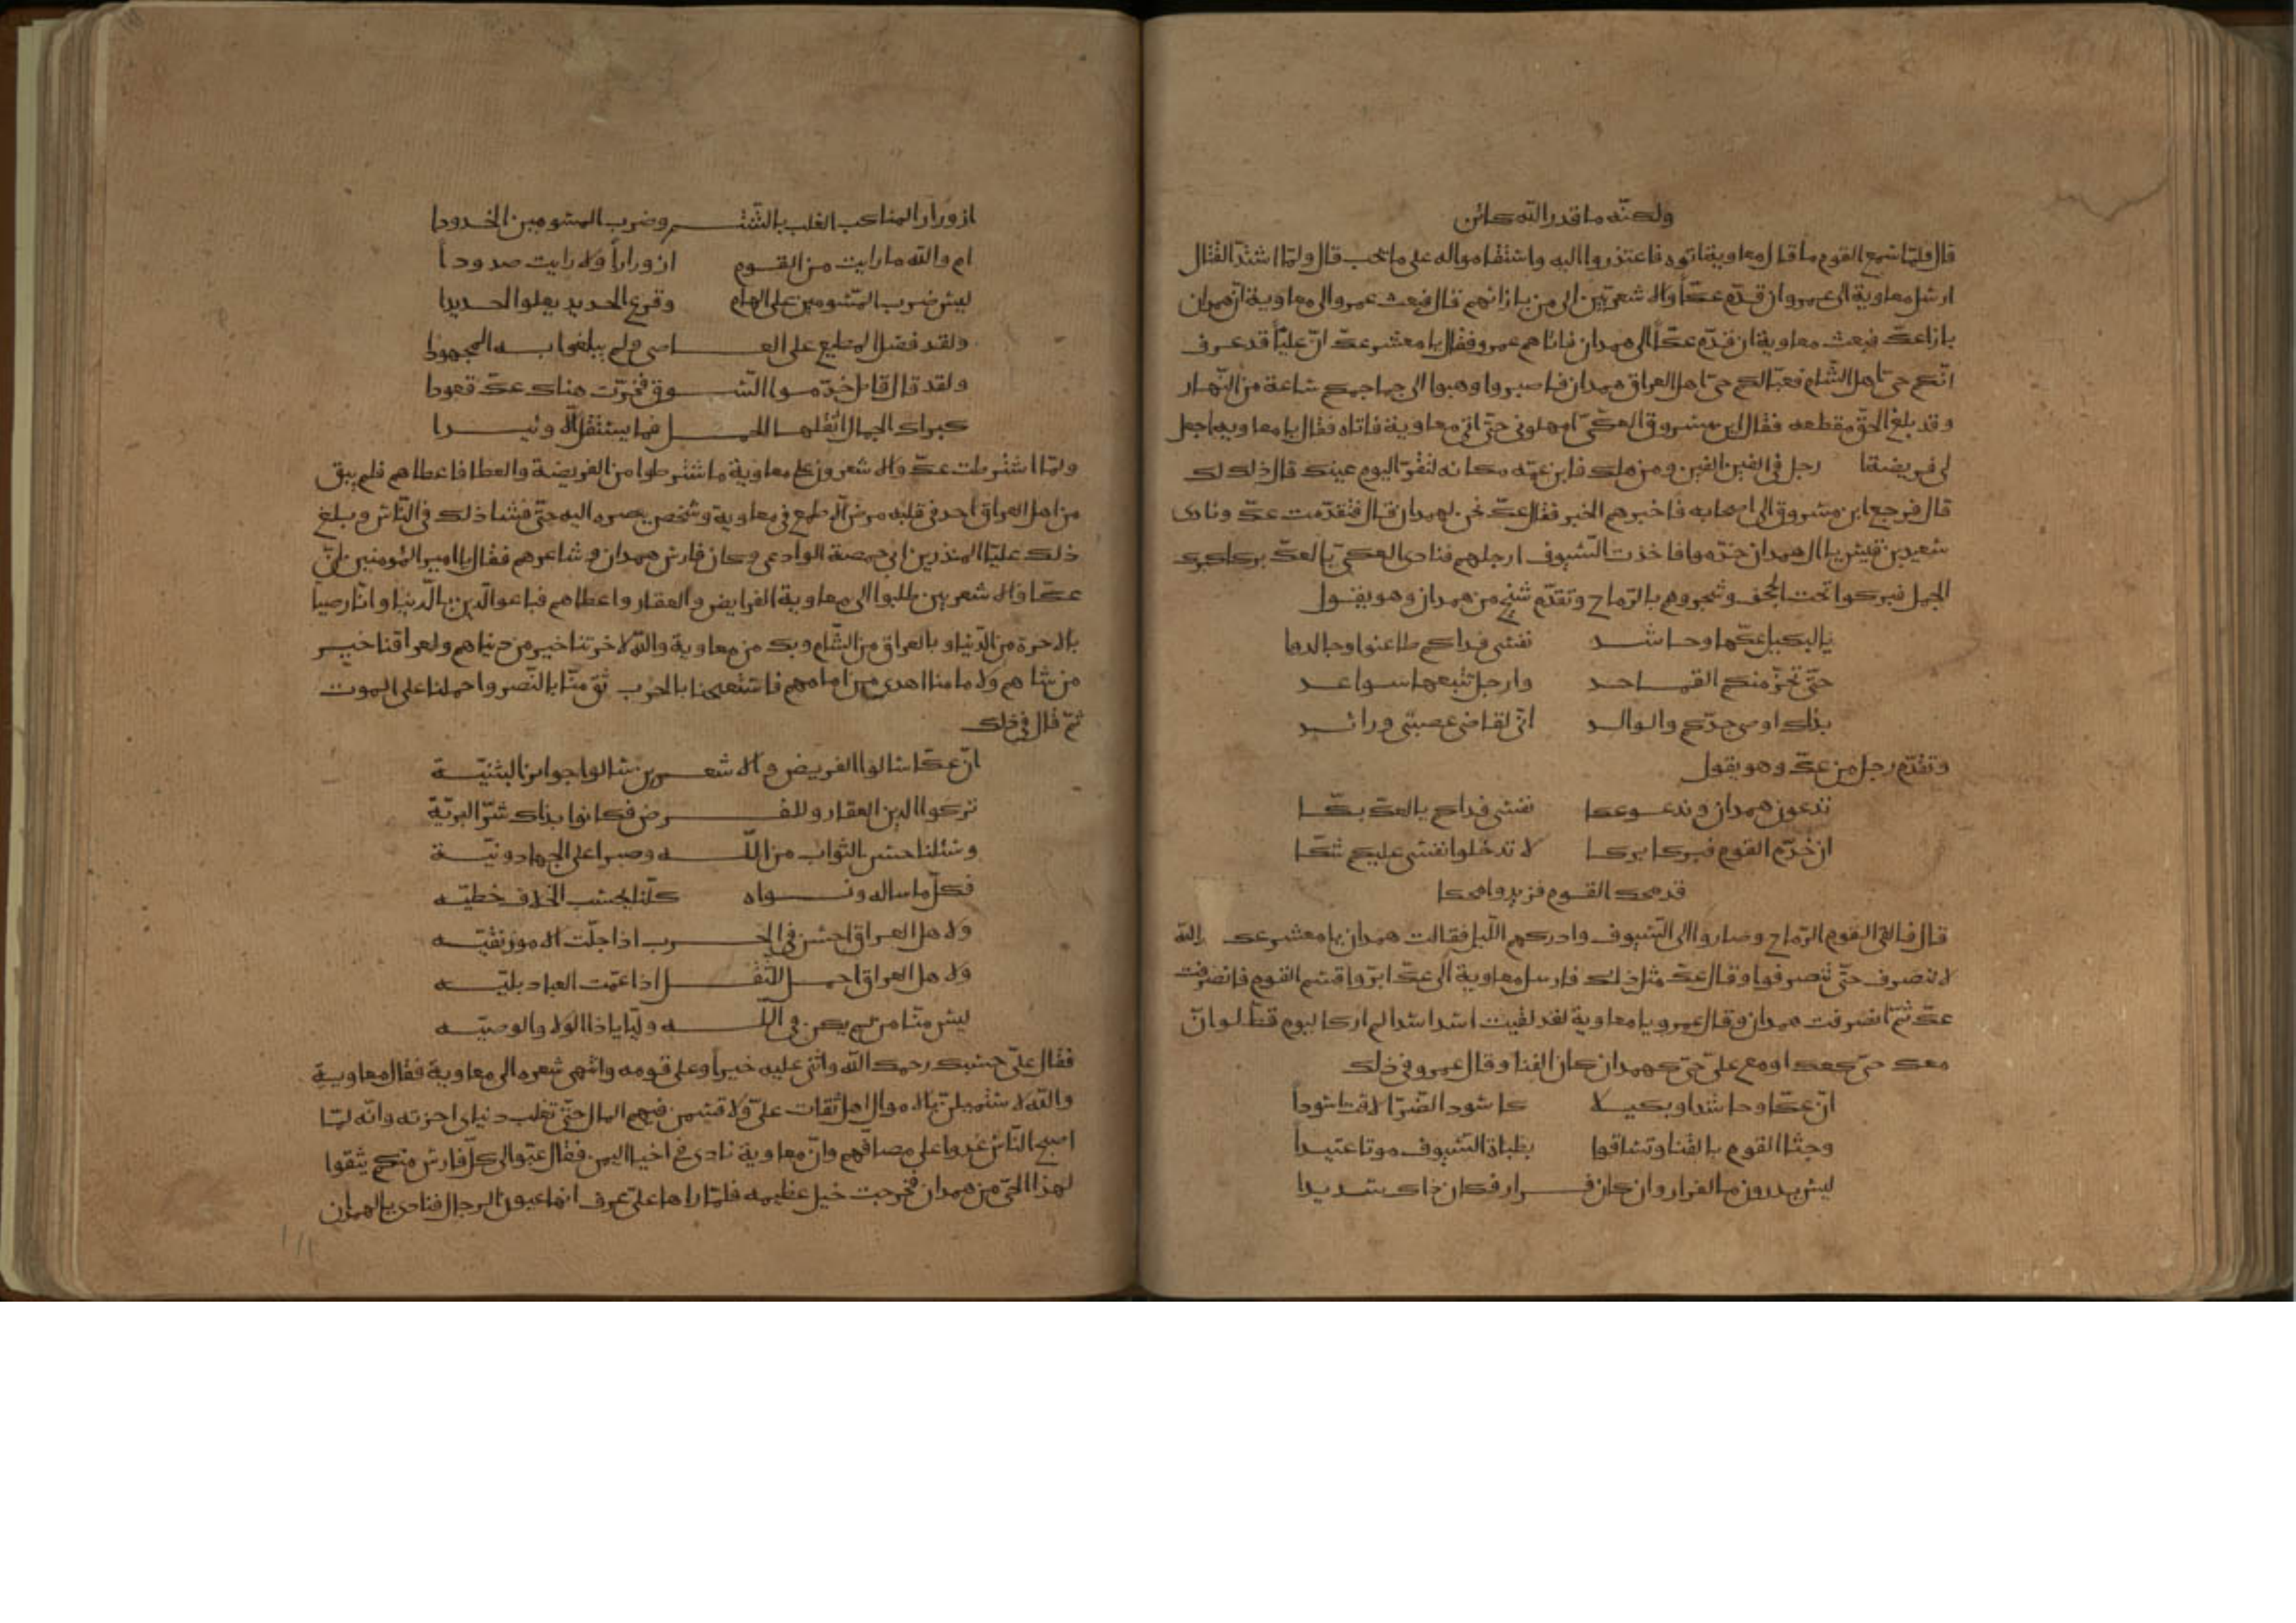 ولكنه ما قدر الله كائن
قال فلما سمع القوم ما قال معاوية اتوه فاعتذروا اليه واستقاموا له على ما يحب قال ولما اشتد القتال
ارسل معاوية الى عمرو ان قدم عكا والاشعريين الى من بازائهم قال فبعث عمرو الى معاوية ان همدان
بازا عك فبعث معاوية ان قدم عكا الى همدان فاتاهم عمرو فقال يا معشر عك ان عليا قد عرف
انكم حي اهل الشام فعبا لكم حي اهل العراق همدان فاصبروا وهبوا الي جماجمكم ساعة من النهار
وقد بلغ الحق مقطعه فقال ابن مسروق العكي امهلوني حتى اتي معاوية فاتاه فقال يا معاوية اجعل
لي فريضة رجل في الفين الفين ومن هلك فابن عمه مكانه لنقر اليوم عينك قال ذلك لك
قال فرجع ابن مسروق الى اصحابه فاخبرهم الخبر فقال عك نحن لهمدان قال فتقدمت عك ونادى
سعيد بن قيس يا ال همدان خدموا فاخذت السيوف ارجلهم فنادى العكي يا لعك بركا كبرك
الجمل فبركوا تحت الجحف وشجروهم بالرماح وتقدم شيخ من همدان وهو يقول
يا لبكيل عكها وحاشد نفسي فداكم طاعنوا وجالدوا
حتى تخر منكم القماحد وارجل تتبعها سواعد
بذلك اوصى جدكم والوالد اني لقاضي عصبتي ورائد
وتقدم رجل من عك وهو يقول
تدعون همدان وندعو عكا نفسي فداكم يا لعك بكا
ان خدم القوم فبركا بركا لا تدخلوا نفسي عليكم شكا
قد محك القوم فزيدوا محكا
قال فالقى القوم الرماح وصاروا الى السيوف وادركهم الليل فقالت همدان يا معشر عك والله
لا ننصرف حتى تنصرفوا وقال عك مثل ذلك فارسل معاوية الى عك ابروا قسم القوم فانصرفت
عك ثم انصرفت همدان وقال عمرو يا معاوية لقد لقيت اسد اسدا لم ار كاليوم قط لو ان
معك حي كعك او مع علي حي كهمدان كان الفنا وقال عمرو في ذلك
ان عكا وحاشدا وبكيلا كاسود الضرا لاقت اسودا
وجثا القوم بالقنا وتساقوا بظباة السيوف موتا عتيدا
ليس يدرون ما الفرار وان كان فرار فكان ذاك سديدا
ازورار المناكب الغلب بالشم وضرب المسومين الخدودا
ام والله ما رايت من القوم ازورارا ولا رايت صدودا
ليس ضرب المسومين على الهام وقرع الحديد يعلو الحديدا
ولقد فضل المطيع على العاصي ولم يبلغوا به المجهودا
ولقد قال قائل خدموا السوق فخرت هناك عك قعودا
كبراك الجمال اثقلها الحمل فما يستقل الا وئيدا
ولما اشترطت عك والاشعرون على معاوية ما اشترطوا من الفريضة والعطا فاعطاهم فلم يبق
من اهل العراق احد في قلبه مرض الا طمع في معاوية وشخص بصره اليه حتى فشا ذلك في الناس وبلغ
ذلك عليا المنذر بن ابي حمصة الوادعي وكان فارس همدان وشاعرهم فقال يا امير المومنين ان
عكا والاشعريين طلبوا الى معاوية الفرايض والعقار واعطاهم فباعوا الدين بالدنيا وانا رضينا
بالاخرة من الدنيا وبالعراق من الشام وبك من معاوية والله لاخرتنا خير من دنياهم ولعراقنا خير
من شامهم ولامامنا اهدى من امامهم فاستفتحنا بالحرب ثق منا بالنصر واحملنا على الموت
ثم قال في ذلك
ان عكا سالوا الفريض والاشعرين سالوا جوائز البثنية
تركوا الدين العقار وللفرض فكانوا بذاك شر البرية
وسئلنا حسن الثواب من الله وصبرا على الجهاد ونية
فكل ما ساله ونواه كلنا يحسب الخلاف خطيه
ولاهل العراق احسن في الحرب اذا جلت الامور نقيه
ولاهل العراق احمل للثقل اذا عمت العباد بليه
ليس منا من لم يكن في الله وليا يا ذا الولا والوصيه
فقال علي حسبك رحمك الله واثنى عليه خيرا وعلى قومه وانتهى شعره الى معاوية فقال معاوية
والله لاستميلن بالاموال اهل ثقات علي ولاقسمن فيهم المال حتى تغلب دنياي اخرته وانه لما
اصبح الناس غدوا على مصافهم وان معاوية نادى في احيا اليمن فقال عبوا الى كل فارس منكم يثقوا
لهذا الحي من همدان فخرجت خيل عظيمه فلما راها علي عرف انها عيون الرجال فنادى يا لهمدان